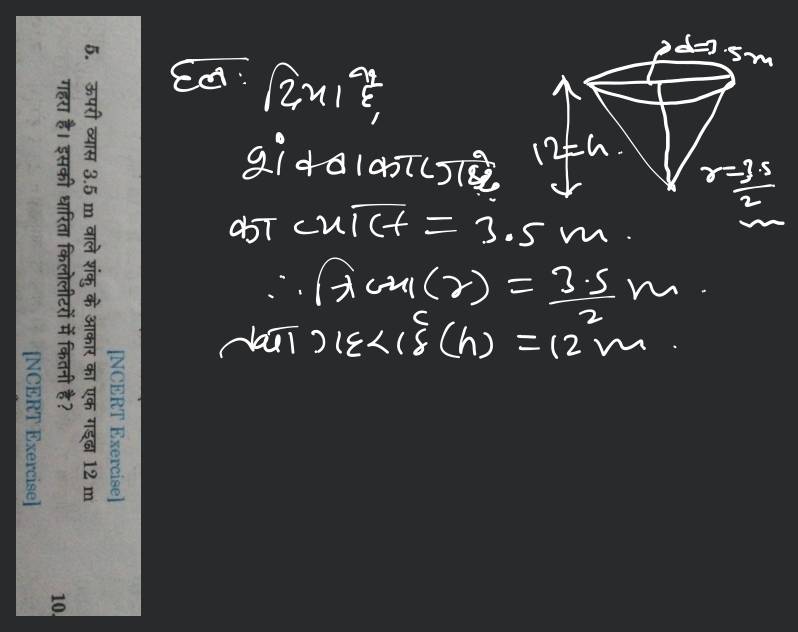 5. ऊपरी व्यास 3.5 m वाले शंकु के आकार का एक गड्ढा 12 m
गहरा है। इसकी धारिता किलोलीटरों में कितनी है?
[NCERT Exercise]
[NCERT Exercise]
10.
हल: दिया है,
शंक्वाकार गड्ढे
का व्यास = 3.5 m.
∴ त्रिज्या (r) = 3.5/2 m.
तथा गहराई (h) = 12 m.
d=3.5m
12=h.
r=3.5/2 m